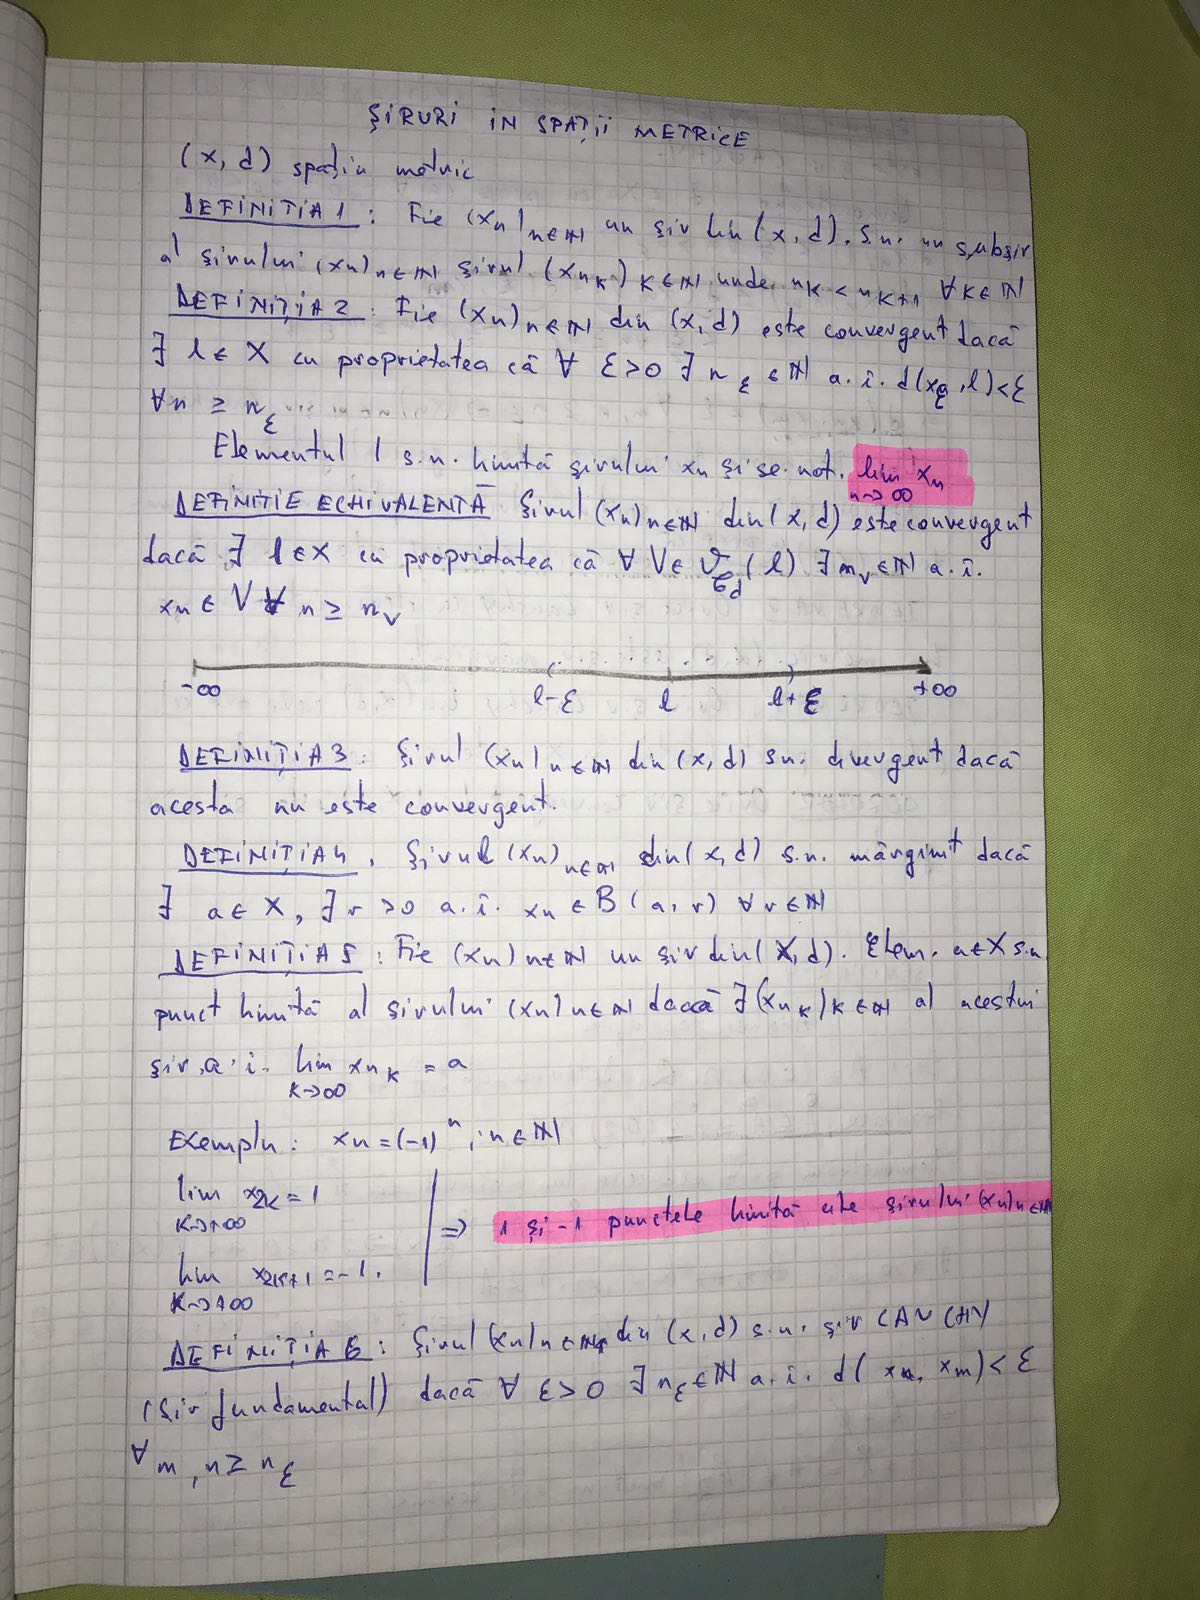 ŞIRURI IN SPAŢII METRICE
(X, d) spaţiu metric
DEFINITIA 1 : Fie (xn)n∈ℕ un şir din (X, d). S.n. un subşir
al şirului (xn)n∈ℕ şirul (xnk)k∈ℕ unde nk < nk+1 ∀k∈ℕ
DEFINIŢIA 2 : Fie (xn)n∈ℕ din (X, d) este convergent dacă
∃ l ∈ X cu proprietatea că ∀ ε>0 ∃ nε ∈ℕ a.î. d(xε, l)<ε
∀n ≥ nε
Elementul l s.n. limită şirului xn şi se not. lim xn
n→∞
DEFINITIE ECHIVALENTĂ Şirul (xn)n∈ℕ din (X, d) este convergent
dacă ∃ l∈X cu proprietatea că ∀ V∈ 𝒱𝒢d (l) ∃ nv ∈ℕ a.î.
xn ∈ V ∀ n ≥ nv
-∞ l-ε l l+ε +∞
DEFINIŢIA 3 : Şirul (xn)n∈ℕ din (X, d) s.n. divergent dacă
acesta nu este convergent.
DEFINIŢIA 4 . Şirul (xn)n∈ℕ din (X, d) s.n. mărginit dacă
∃ a∈X, ∃ r >0 a.î. xn ∈ B(a, r) ∀ r∈ℕ
DEFINIŢIA 5 : Fie (xn)n∈ℕ un şir din (X, d). Elem. a∈X s.n
punct limită al şirului (xn)n∈ℕ dacă ∃(xnk)k∈ℕ al acestui
şir, a.î. lim xnk = a
k→∞
Exemplu : xn = (-1)^n, n∈ℕ
lim x2k = 1
k→+∞
=> 1 şi -1 punctele limită ale şirului (xn)n∈ℕ
lim x2k+1 = -1.
k→+∞
DEFINIŢIA 6 : Şirul (xn)n∈ℕ din (X, d) s.n. şir CAUCHY
(şir fundamental) dacă ∀ ε>0 ∃ nε∈ℕ a.î. d(xn, xm)<ε
∀ m, n ≥ nε